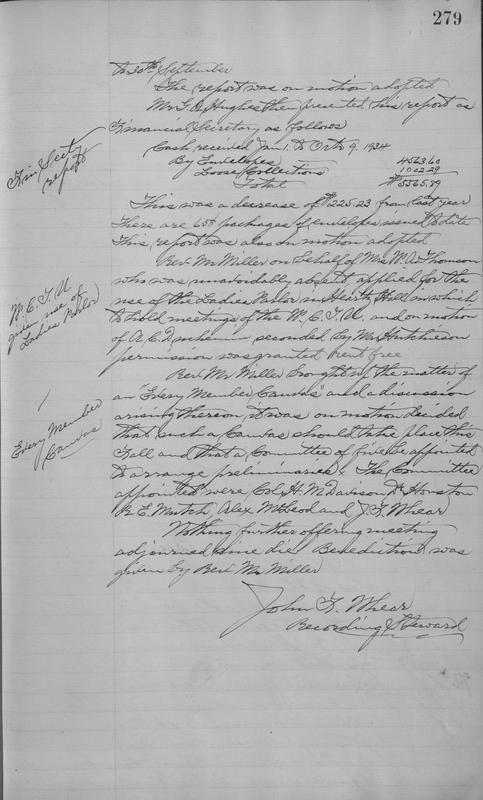 279
to 30th September
The report was on motion adopted
Mr G. A. Hughes then presented his report as
Financial Secretary as follows
Cash received Jan 1. to Oct 9. 1934
By Envelopes 4563.60
Loose Collections 1002.29
Total $5565.89
Fin Sect
report
This was a decrease of $225.23 from last year
There are 655 packages of envelopes issued to date
This report was also on motion adopted
Rev. Mr Miller on behalf of Mrs. M. A. Thomson
who was unavoidably absent applied for the
use of the Ladies Parlor in Heartz Hall in which
to hold meetings of the W. C. T. U. and on motion
of A. C. D seconded by Mr Hutcheson
permission was granted Rent free
W. C. T. U
given use of
Ladies Parlor
Rev. Mr Miller brought up the matter of
an "Every Member Canvas" and a discussion
arising thereon, it was on motion decided
that such a Canvas should take place this
Fall and that a Committee of five be appointed
to arrange preliminaries. The Committee
appointed were Col. H. M. Davison Dr Houston
R. E. Mutch, Alex McLeod and J. F. Whear
Every Member
Canvas
Nothing further offering meeting
adjourned sine die. Benediction was
given by Rev. Mr Miller
John F. Whear
Recording Steward